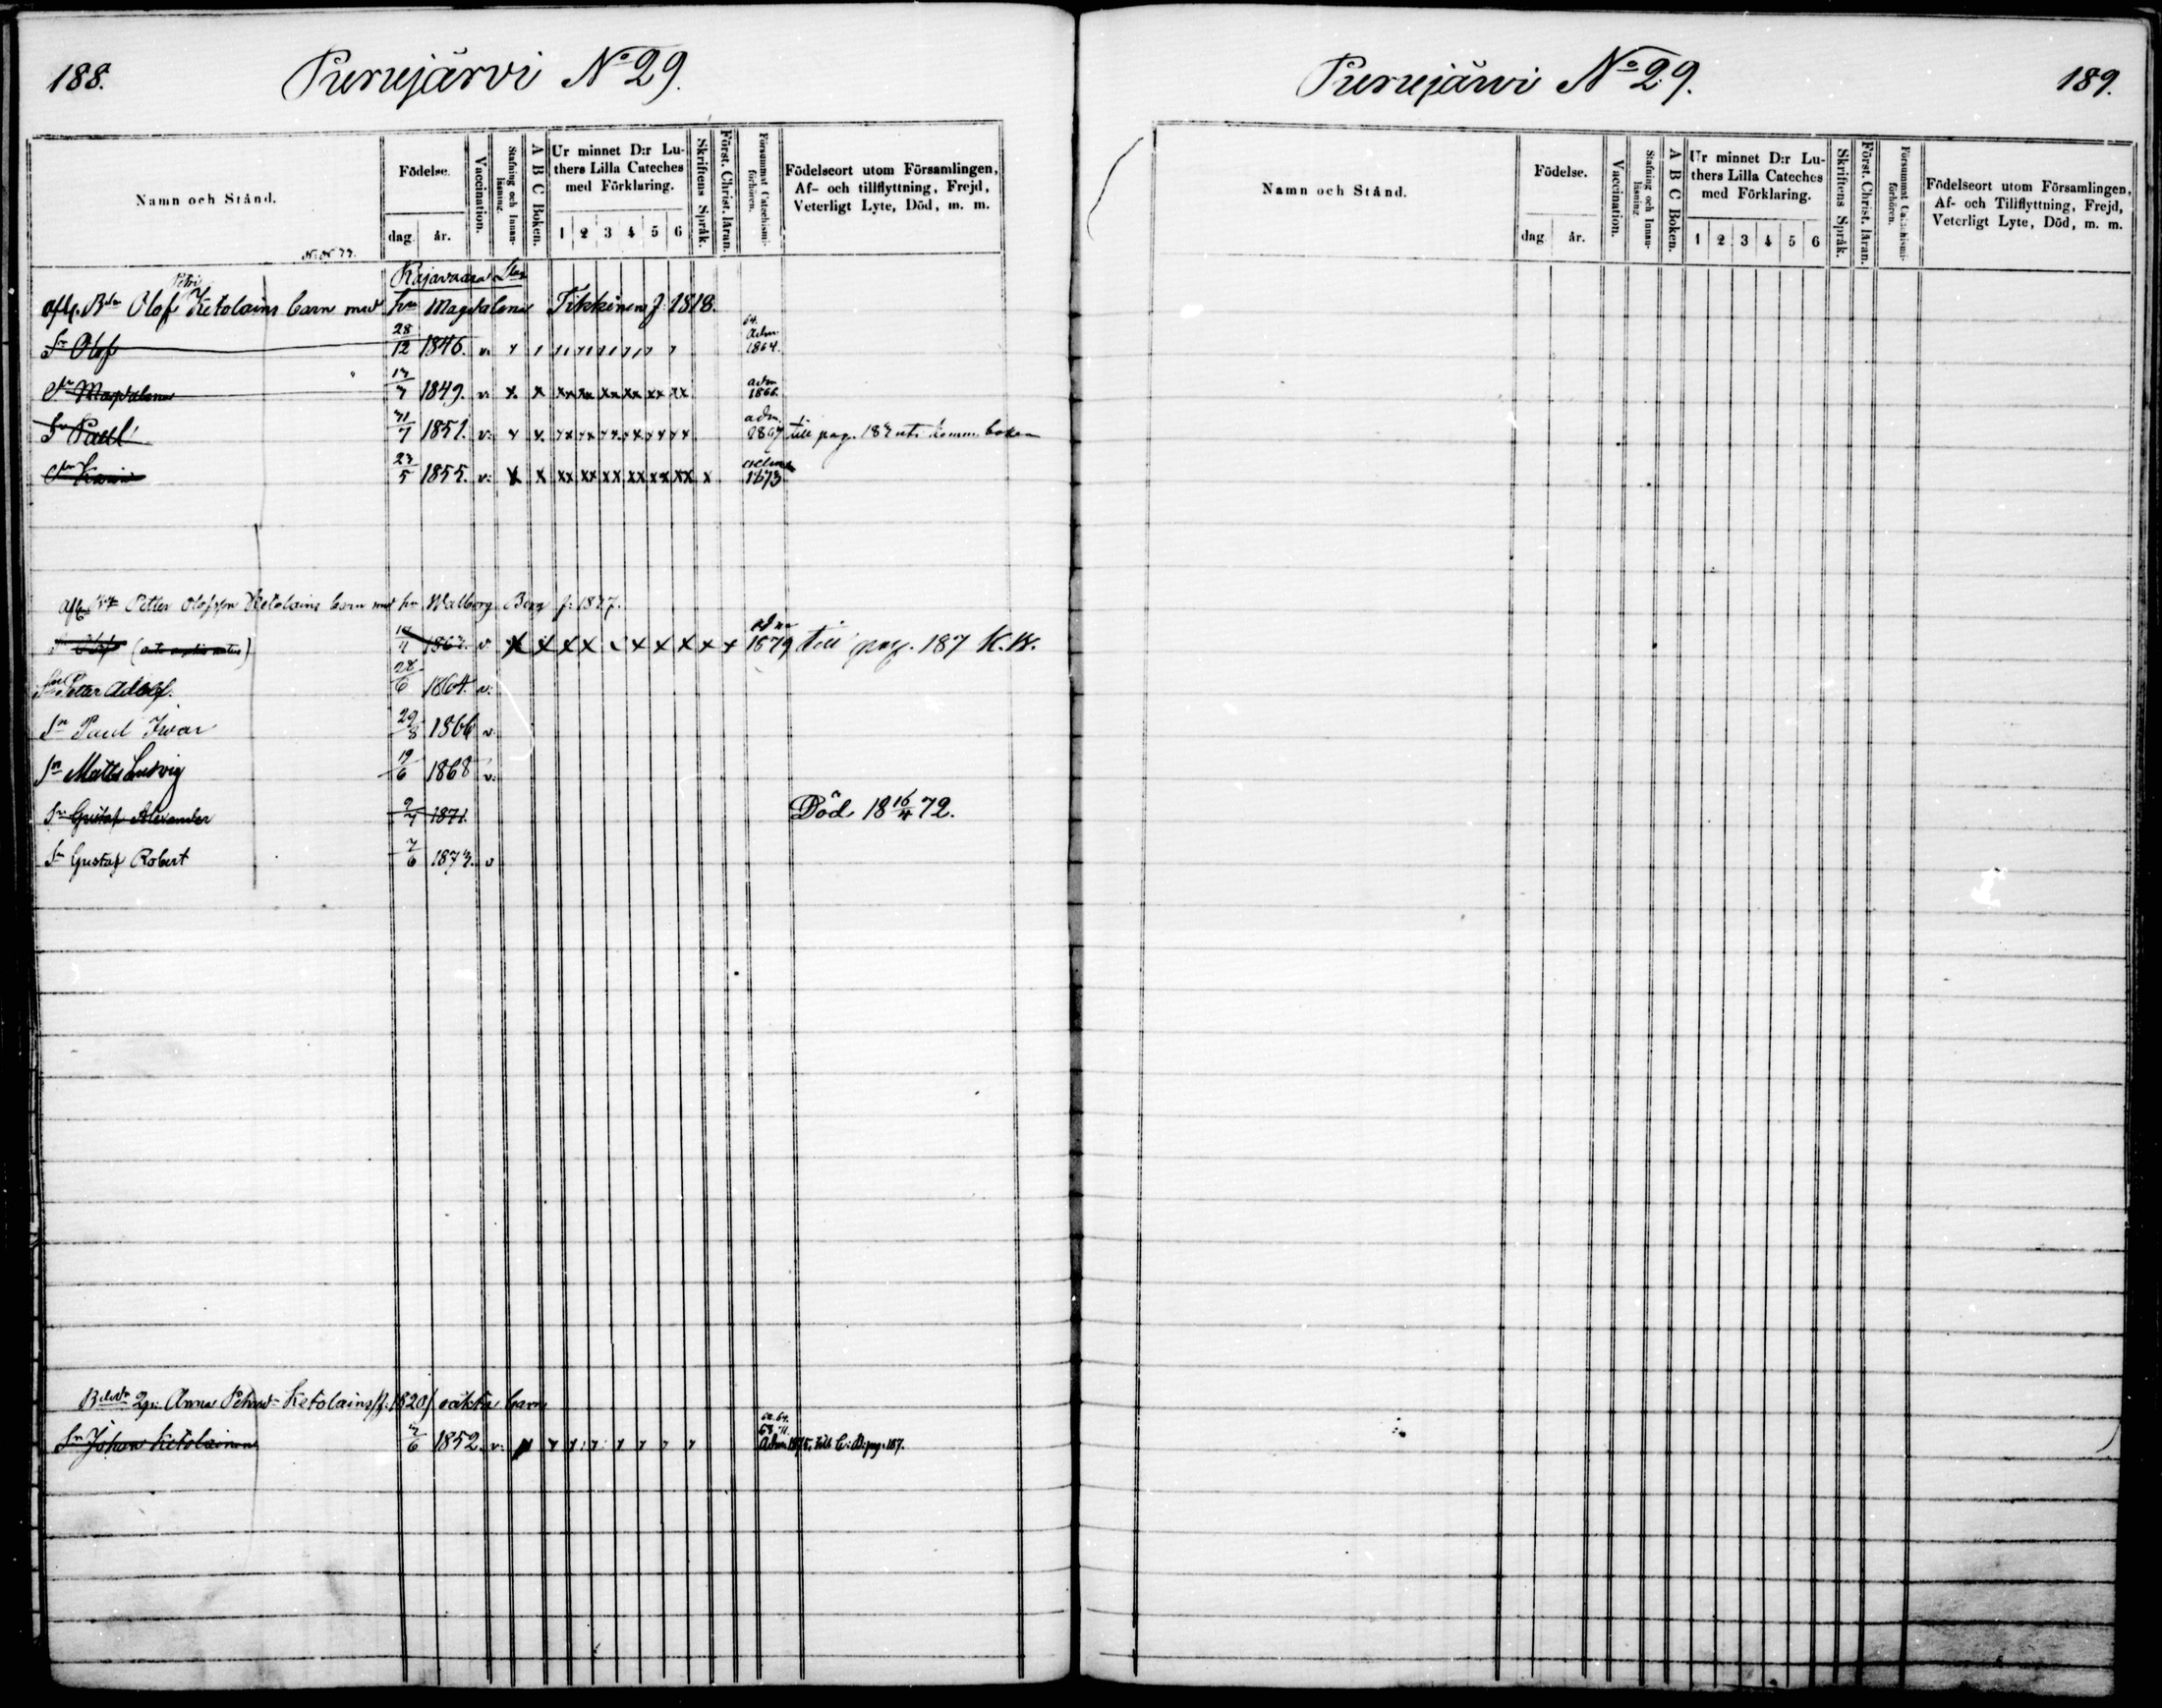 188.
Purnujärvi No 29.
Namn och Stånd.
Födelse.
dag.
år.
Vaccination.
Stafning och Innanläsning.
A B C Boken.
Ur minnet D:r Luthers Lilla Cateches med Förklaring.
1 2 3 4 5 6
Skriftens Språk.
Först. Christ. läran.
Försummat Catechismiförhören.
Födelseort utom Församlingen,
Af- och tillflyttning, Frejd,
Veterligt Lyte, Död, m. m.
Kajavaara
Petri
afl. Bdn Olof Ketolains barn med hu Magdalena Tikkinen f. 1818.
Sn Olof 28/12 1846. v. 64. Adm. 1864.
Dr Magdalena 1849. v. x x xx xx xx xx xx xx adm 1866.
Sn Paul 1851. v. adm. 1867 till pag. 187 uti komm. boken
Dr Karin 23/5 1855. v. x x xx xx xx xx xx xx x adm 1873
Petter Olofsson Ketolains barn med hu Walborg f. 1837.
Sn Olof v. x x x x x x x x x x adm 1879 till pag. 187 K.B.
Petter Adolf. 28/6 1864. v.
Sn Paul Ivar 29/8 1866 v.
Sn Matts Ludvig 19/6 1868 v.
Sn Gustaf Alexander 1871. Död 18 16/4 72.
Sn Gustaf Robert 7/6 1873. v
Anna Ketolains (f. 1820) oäkta barn
Sn Johan Ketolainen 1852. v. Adm. 1875. pag. 187.
Purnujärvi No 29.
189.
Namn och Stånd.
Födelse.
dag.
år.
Vaccination.
Stafning och Innanläsning.
A B C Boken.
Ur minnet D:r Luthers Lilla Cateches med Förklaring.
1 2 3 4 5 6
Skriftens Språk.
Först. Christ. läran.
Försummat Catechismiförhören.
Födelseort utom Församlingen,
Af- och Tillflyttning, Frejd,
Veterligt Lyte, Död, m. m.